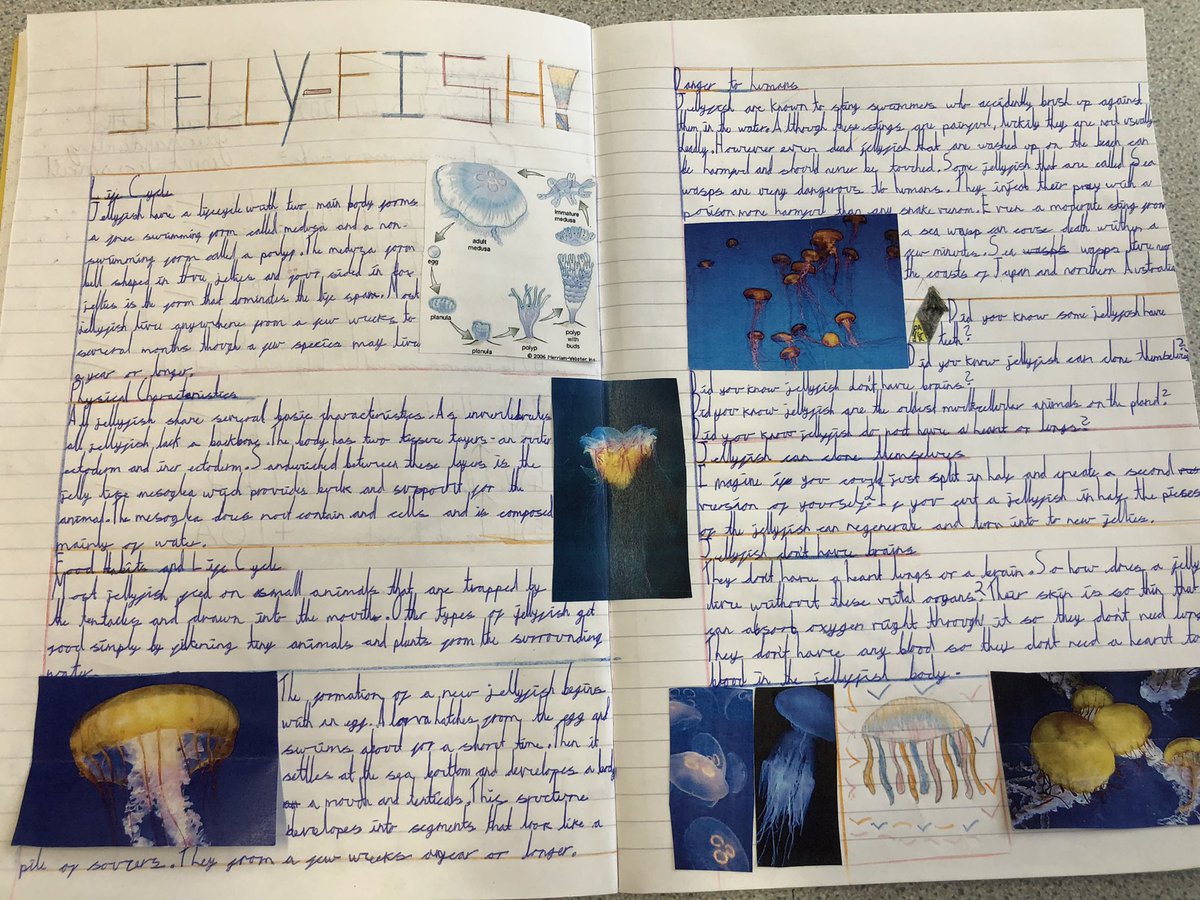 JELLY-FISH!
Life Cycle
Jellyfish have a lifecycle with two main body forms
a free swimming form called medusa and a non-
swimming form called a polyp. The medusa form
bell shaped in true jellies and four sided in box
jellies is the form that dominates the life span. Most
jellyfish live anywhere from a few weeks to
several months though a few species may live
a year or longer.
adult
medusa
immature
medusa
egg
planula
planula
polyp
polyp
with
buds
© 2006 Merriam-Webster, Inc.
Physical Characteristics
All jellyfish share several basic characteristics. As invertebrates
all jellyfish lack a backbone. The body has two tissue layers - an outer
ectoderm and iner ectoderm. Sandwiched between these layers is the
jelly like mesoglea wich provides bulk and support for the
animal. The mesoglea does not contain and cells and is composed
mainly of water.
Food Habits and Life Cycle
Most jellyfish feed on small animals that are trapped by
the tentacles and drawn into the mouths. Other types of jellyfish get
food simply by filtering tiny animals and plants from the surrounding
water.
The formation of a new jellyfish begins
with an egg. A larva hatches from the egg and
swims about for a short time. Then it
settles at the sea bottom and developes a body
a mouth and tenticals. This structure
developes into segments that look like a
pile of sorcers. They from a few weeks ayear or longer.
Danger to humans
Jellyfish are known to sting swimmers who accidently brush up against
them in the water. Although these stings are painful, luckily they are not usually
deadly. However even dead jellyfish that are washed up on the beach can
be harmful and should never be touched. Some jellyfish that are called Sea
wasps are very dangerous to humans. They infect their prey with a
porison more harmful than any snake venom. Even a moderate sting from
a sea wasp can cause death within a
few minutes. Sea wasps wapps live near
the coasts of Japan and northern Australia
Did you know some jellyfish have
teeth?
Did you know jellyfish can clone themselves?
Did you know jellyfish don't have brains?
Did you know jellyfish are the oldest multicellular animals on the planet?
Did you know jellyfish do not have a heart or lungs?
Jellyfish can clone themselves
Imagine if you could just split in half and create a second
version of yourself? If you cut a jellyfish in half the pieces
of the jellyfish can regenerate and turn into to new jellies.
Jellyfish don't have brains
They don't have a heart lungs or a brain. So how does a jelly
live without these vital organs? Their skin is so thin that
can absorb oxygen right through it so they don't need lungs
They don't have any blood so they dont need a heart to
blood in the jellyfish body.